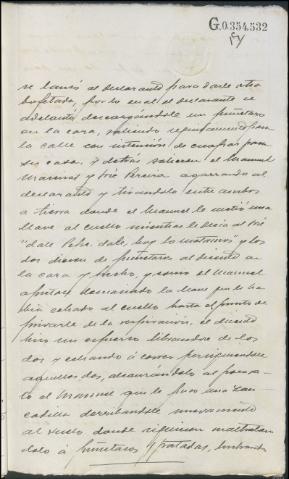 G.0.354.532
se lanzó al declarante para darle otra
bofetada, por lo cual el declarante se
adelantó descargandole un puñetazo
en la cara, saliendo rapidamente para
la calle con intención de escapar para
su casa. Y detrás salieron el Manuel
y José Pereira agarrando al
declarante y tirandole entre ambos
a tierra donde el Manuel le metió una
llave al cuello mientras le decia al José
"dale Pepe, dale, hoy lo matamos" y los
dos dieron de puñetazos al diciente en
la cara y pecho, y como el Manuel
apretase demasiado la llave que le ha
bia echado al cuello hasta el punto de
privarle de la respiración, el diciente
hizo un esfuerzo librandose de los
dos y echando á correr persiguiendole
aquellos dos, alcanzándolo al poco
el Manuel que le puso una zan
cadilla derribandole nuevamente
al suelo donde siguieron maltratan
dolo á puñetazos y patadas,